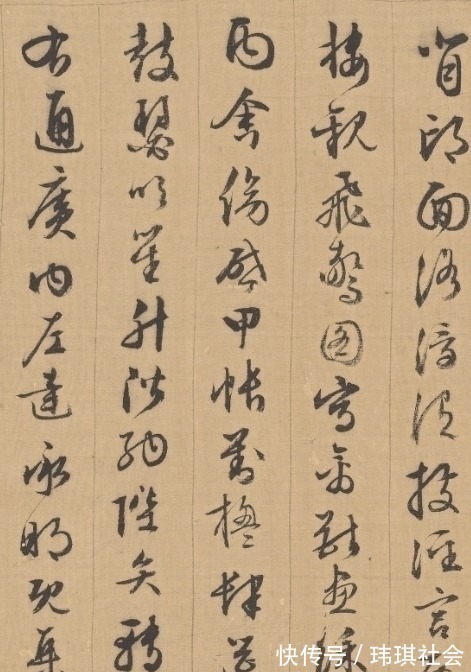 背邙面洛浮渭據涇宮
樓觀飛驚圖寫禽獸畫
丙舍傍啟甲帳對楹肆筵
鼓瑟吹笙升階納陛弁轉
右通廣內左達承明既集
快传号 / 玮琪社会